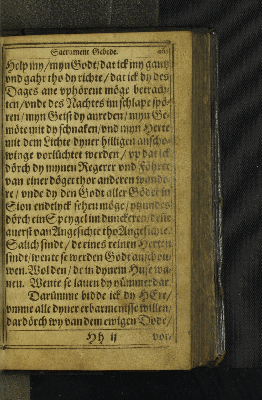 Sacrament Gebede.
Help my / myn Godt / dat ick my gantz
vnd gahr tho dy richte / dat ick dy des
Dages ane vphörent möge betrach-
ten / vnde des Nachtes im schlape spö-
ren / myn Geist dy anreden / myn Ge-
möte mit dy schnaken / vnd myn Herte
mit dem Lichte dyner hilligen anscho-
winge vorlüchtet werden / vp dat ick
dörch dy mynen Regerer vnd Föhrer
van einer döget thor anderen wande-
re / vnde dy den Godt aller Göder in
Sion endtlyck sehen möge / ytzundes
dörch ein Speygel im dunckeren / denn
auerst van Angesichte tho Angesichte.
Salich sindt / de eines reinen Herten
sindt / wente se werden Godt anschou-
wen. Wol den / de in dynem Huse wa-
nen. Wente se lauen dy nümmerdar.
Darümme bidde ick dy HEre /
vmme alle dyner erbarmentsse willen /
dardörch wy van dem ewigen Dode /
Hh ij
vor-